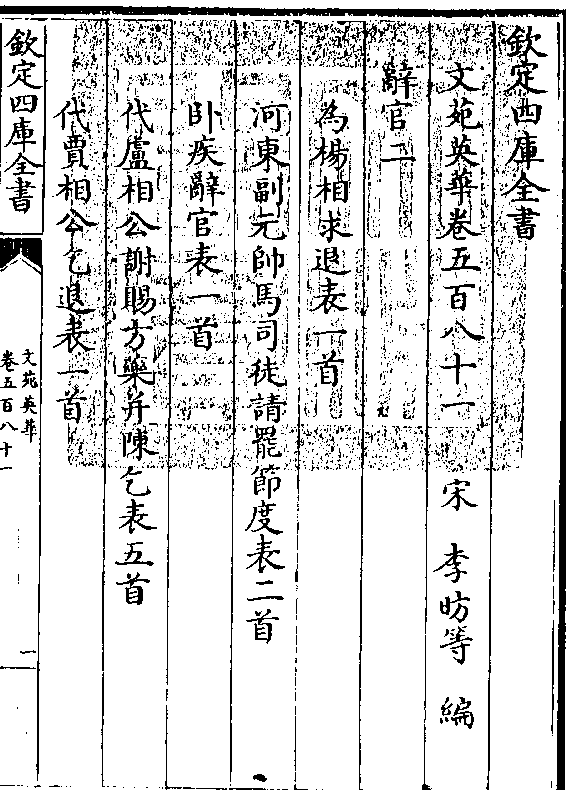 欽定四庫全書
文苑英華卷五百八十一　宋　李昉等　編
辭官二
為楊相求退表一首
河東副元帥馬司徒請罷節度表二首
卧疾辭官表一首
代盧相公謝賜方藥并陳乞表五首
代賈相公乞退表一首
欽定四庫全書
文苑英華
卷五百八十一
一